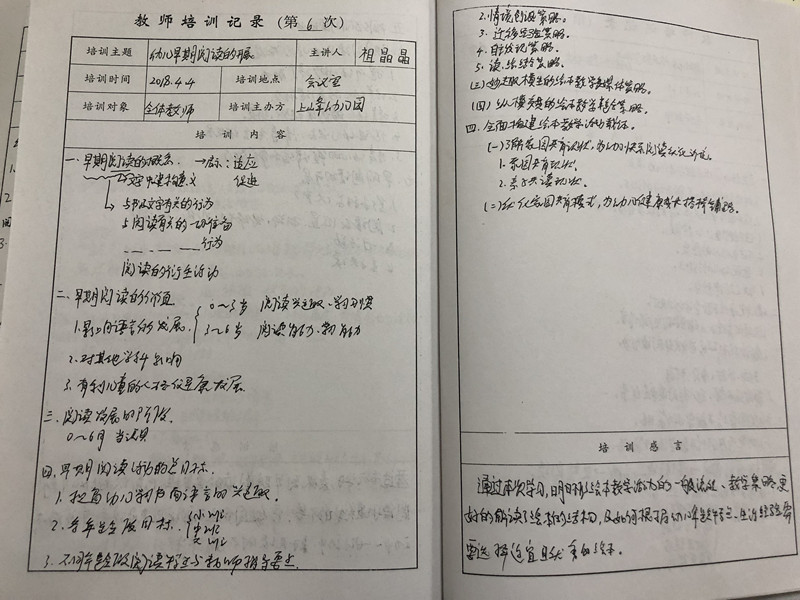 教师培训记录（第 6 次）
培训主题 幼儿早期阅读的开展 主讲人 祖晶晶
培训时间 2018.4.4 培训地点 会议室
培训对象 全体教师 培训主办方 幼儿园
培训内容
一、早期阅读的概念 → 启示：适应
文字中建构意义 促进
↳ 与书及文字有关的行为
与阅读有关的一切准备
行为
阅读的衍生活动
二、早期阅读的价值
0～3岁 阅读兴趣、学习习惯
1. 语言的发展
3～6岁 阅读能力、能力
2. 对其他学科影响
3. 有利儿童的人格健康发展
三、阅读发展的阶段
0～6月
四、早期阅读活动的总目标
1. 提高幼儿学习书面语言的兴趣
2. 各年龄段目标
小班
中班
大班
3. 不同年龄段阅读特点与教师指导要点
2. 情境创设策略。
3. 迁移经验策略。
4. 策略。
5. 读、结合策略。
(三) 绘本教学策略。
(四) 绘本教学策略。
四、全面构建绘本教学活动载体。
(一) 了解家园共育现状，为幼儿快乐阅读
1. 家园共育现状。
2. 亲子共读现状。
(二) 家园共育模式，为幼儿健康成长搭桥铺路。
培训感言
通过本次学习，明白了绘本教学活动的一般流程、教学策略，更
好的解读了绘本的结构，及如何根据幼儿年龄特点、生活经验需
要选择适宜且优秀的绘本。